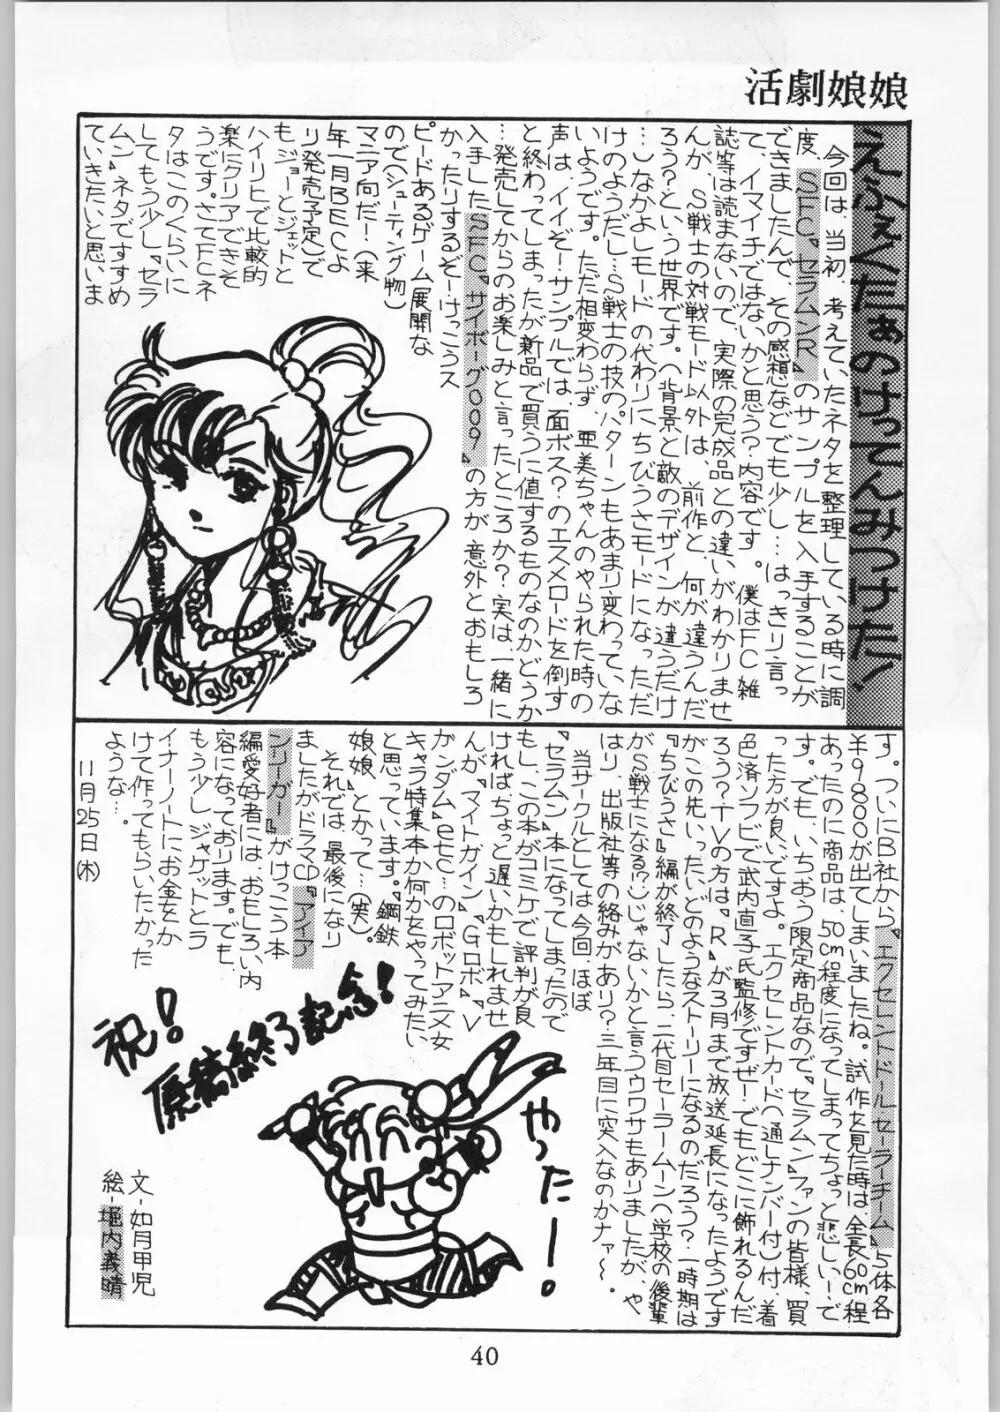 活劇娘娘
えふぇくたぁのけってんみつけた!
今回は当初、考えていたネタを整理している時に調
度、SFC『セラムンR』のサンプルを入手することが
できましたんで、その感想などでも少し…はっきり言っ
て、イマイチではないかと思う?内容です。僕はFC雑
誌等は読まないので、実際の完成品との違いがわかりませ
んが、S戦士の対戦モード以外は、前作と、何が違うんだ
ろう?という世界です。(背景と敵のデザインが違うだけ
…)なかよしモードの代わりにちびうさモードになっただ
けのようだし…S戦士の技のパターンもあまり変わっていな
いようです。ただ相変わらず、亜美ちゃんのやられた時の
声は、イイぞーサンプルでは、面ボス??のエスメロードを倒す
と終わってしまったが新品で買うに値するものなのかどうか
…発売してからのお楽しみと言ったところか?実は、一緒に
入手したSFC『サイボーグ009』の方が、意外とおもしろ
かったりするぞーけっこうス
ピードあるゲーム(展開な
ので(シューティング物)
マニア向だー!(来
年一月BECよ
り発売予定)で
も、ジョーとジェットと
ハイリヒで比較的
楽にクリアできそ
うです。さてFCネ
タはこのくらいに
してもう少し『セラ
ムン』ネタですすめ
ていきたいと思いま
す。ついにB社から『エクセレントドールセーラーチーム』5体各
¥9800が出てしまいましたね。試作を見た時は、全長60cm程
あったのに商品は、50cm程度になってしまってちょっと悲しいーで
す。でも、いちおう限定商品なので『セラムン』ファンの皆様、買
った方が良いですよ。エクセレントカード(通しナンバー付)付、着
色済ソフビで武内直子氏監修ですぜーでもどこに飾れるんだ
ろう?TVの方は『R』が3月まで放送延長になったようです
がこの先いったいどのようなストーリーになるのだろう?一時期は
『ちびうさ』編が終了したら、二代目セーラームーン(学校の後輩
がS戦士になる!?)じゃないかと言うウワサもありましたが、や
はり、出版社等の絡みがあり?三年目に突入なのかナァ〜。
当サークルとしては今回ほぼ
『セラムン』本になってしまったので
もし、この本がコミケで評判が良
ければ、ちょっと遅いかもしれませ
んが、『マイトガイン』『Gロボ』『V
ガンダム』etc…のロボットアニメ女
キャラ特集本か何かをやってみたい
と思っています。『鋼鉄
娘娘』とかって…(笑)。
それでは、最後になり
ましたがドラマCD『アイア
ンリーガー』がけっこう本
編愛好者には、おもしろい内
容になっております。でも、
もう少しジャケットとラ
イナーノートにお金をか
けて作ってもらいたかった
ような…。
11月25日(木)
祝!
原稿後終了記念!
やったー!
文-如月甲児
絵-堀内義晴
40